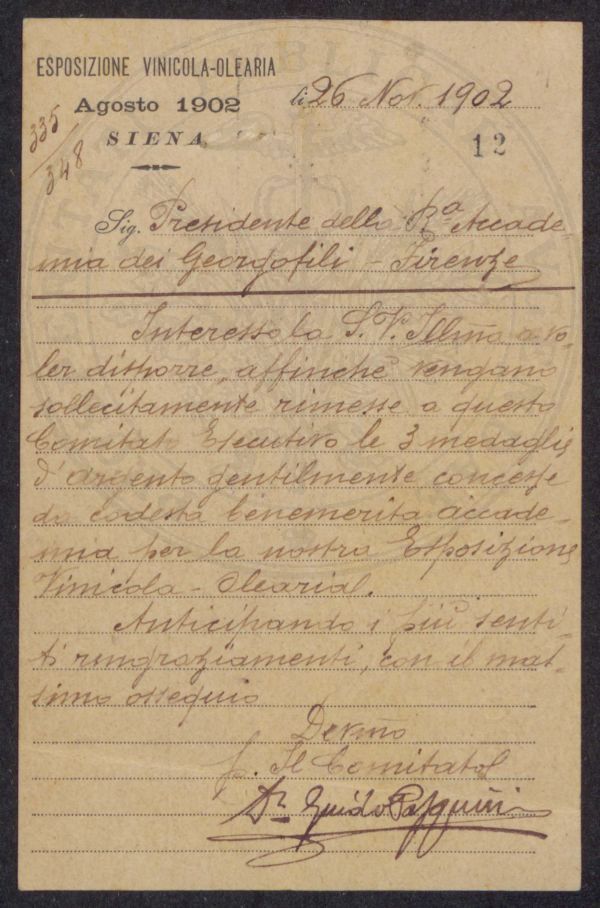 ESPOSIZIONE VINICOLA-OLEARIA
Agosto 1902
SIENA
li 26 Nov. 1902
335/348
12
Sig. Presidente della Rª Accade-
mia dei Georgofili - Firenze
Interesso la S. V. Illma a vo-
ler disporre, affinchè vengano
sollecitamente rimesse a questo
Comitato Esecutivo le 3 medaglie
d'argento gentilmente concesse
da codesta benemerita accade-
mia per la nostra Esposizione
Vinicola - Olearia.
Anticipando i più senti-
ti ringraziamenti, con il mas-
simo ossequio
Devmo
p. Il Comitato
Dr. Guido Pasquini